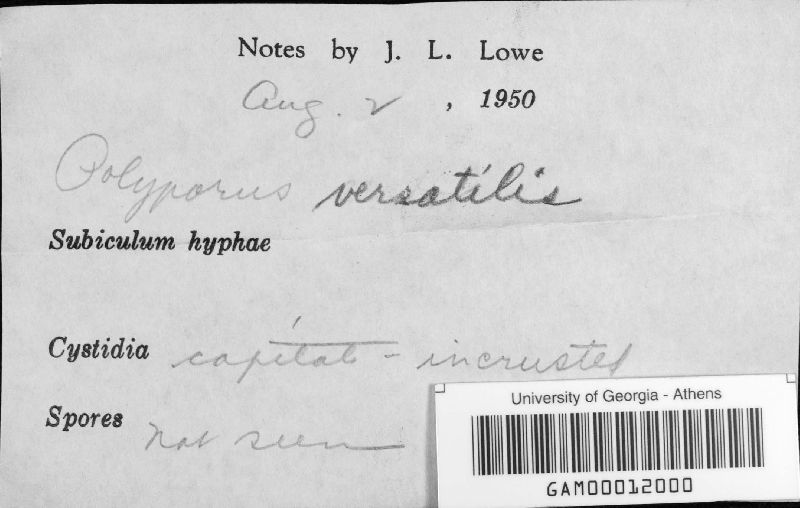 Notes by J. L. Lowe
Aug. 2, 1950
Polyporus versatilis
Subiculum hyphae
Cystidia capitate - incrusted
Spores not seen
University of Georgia - Athens
GAM00012000